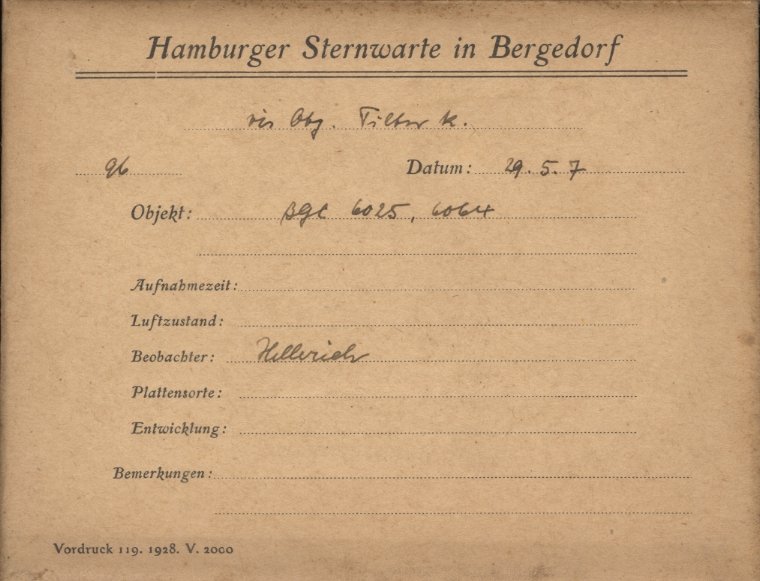 Hamburger Sternwarte in Bergedorf
vis Obj. Filter k.
96 Datum: 29. 5. 7
Objekt: BGC 6025, 6064
Aufnahmezeit:
Luftzustand:
Beobachter: Hellerich
Plattensorte:
Entwicklung:
Bemerkungen:
Vordruck 119. 1928. V. 2000